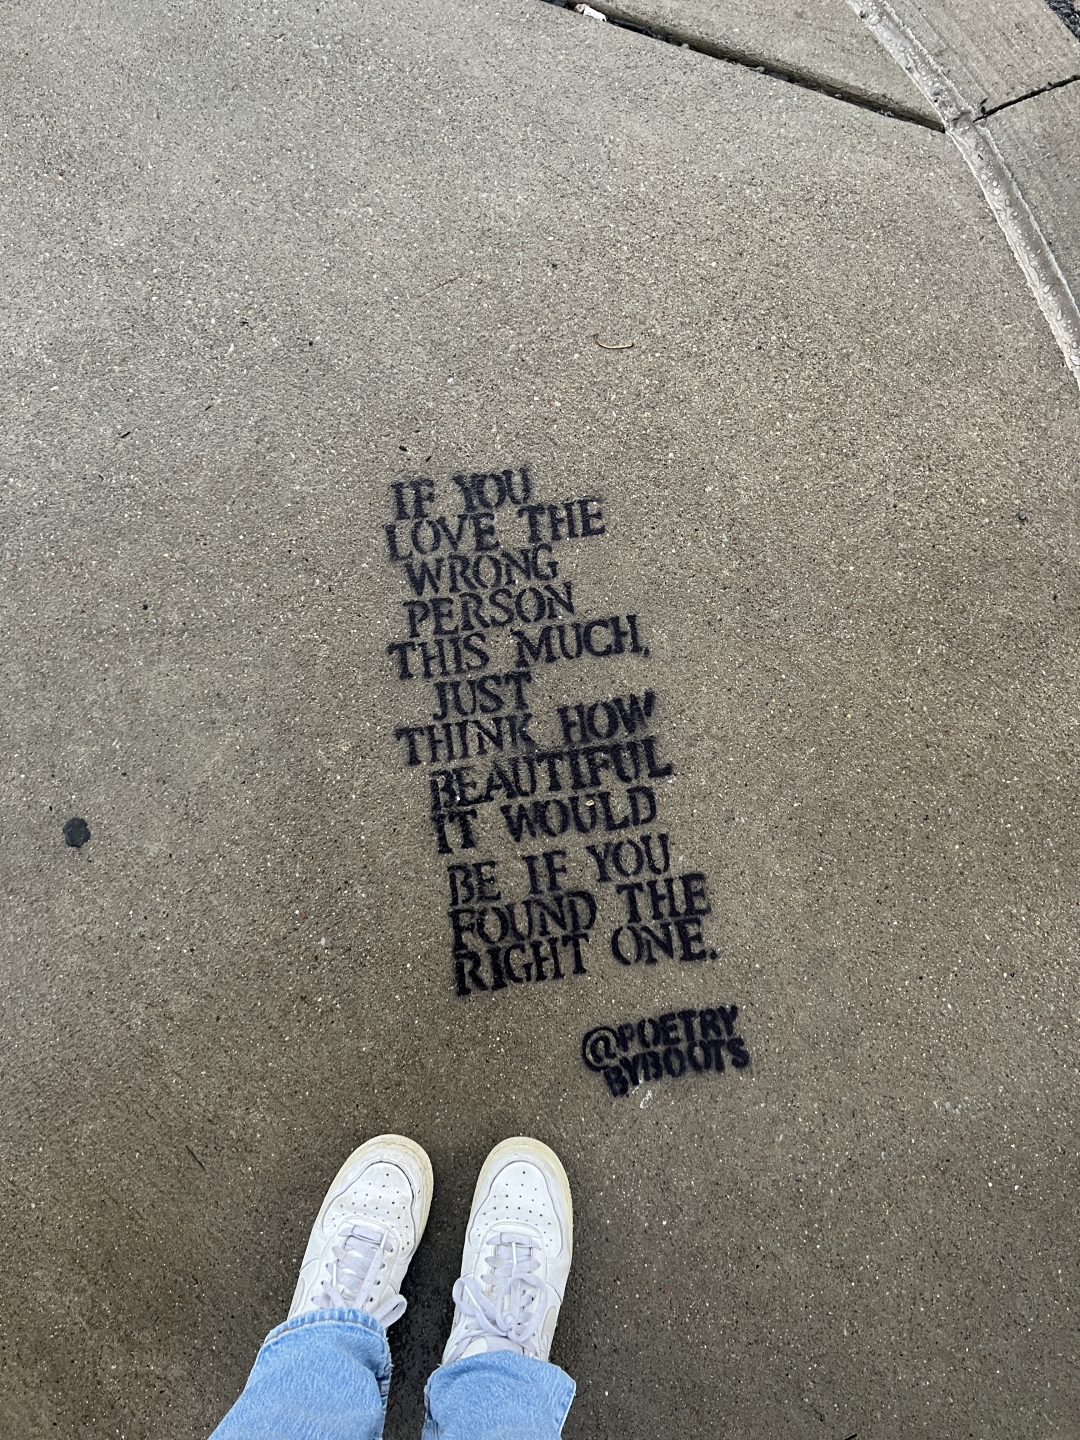 IF YOU
LOVE THE
WRONG
PERSON
THIS MUCH,
JUST
THINK HOW
BEAUTIFUL
IT WOULD
BE IF YOU
FOUND THE
RIGHT ONE.
@POETRY
BYBOOTS